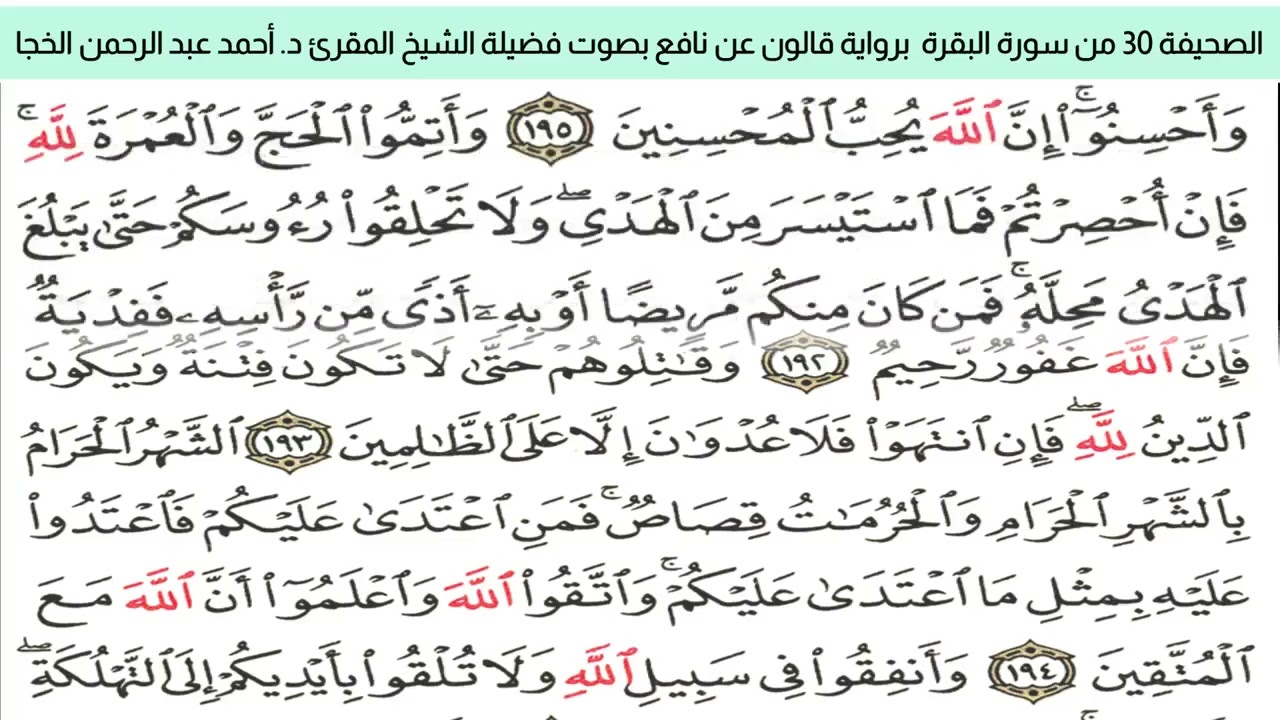 الصحيفة 30 من سورة البقرة برواية قالون عن نافع بصوت فضيلة الشيخ المقرئ د. أحمد عبد الرحمن الخجا
وَأَحْسِنُوٓاْۚ إِنَّ اَ۬للَّهَ يُحِبُّ اُ۬لْمُحْسِنِينَ ١٩٥ وَأَتِمُّواْ اُ۬لْحَجَّ وَالْعُمْرَةَ لِلهِۚ
فَإِنْ أُحْصِرْتُمْ فَمَا اَ۪سْتَيْسَرَ مِنَ اَ۬لْهَدْيِۖ وَلَا تَحْلِقُواْ رُءُوسَكُمْ حَتَّىٰ يَبْلُغَ
اَ۬لْهَدْيُ مَحِلَّهُۥۚ فَمَن كَانَ مِنكُم مَّرِيضًا أَوْ بِهِۦٓ أَذًى مِّن رَّأْسِهِۦ فَفِدْيَةٌ
فَإِنَّ اَ۬للَّهَ غَفُورٌ رَّحِيمٌ ١٩٢ وَقَٰتِلُوهُمْ حَتَّىٰ لَا تَكُونَ فِتْنَةٌ وَيَكُونَ
اَ۬لدِّينُ لِلهِۖ فَإِنِ اِ۪نتَهَوْاْ فَلَا عُدْوَٰنَ إِلَّا عَلَى اَ۬لظَّٰلِمِينَ ١٩٣ اَ۬لشَّهْرُ اُ۬لْحَرَامُ
بِالشَّهْرِ اِ۬لْحَرَامِ وَالْحُرُمَٰتُ قِصَاصٌۚ فَمَنِ اِ۪عْتَدَىٰ عَلَيْكُمْ فَاعْتَدُواْ
عَلَيْهِ بِمِثْلِ مَا اَ۪عْتَدَىٰ عَلَيْكُمْۚ وَاتَّقُواْ اُ۬للَّهَ وَاعْلَمُوٓاْ أَنَّ اَ۬للَّهَ مَعَ
اَ۬لْمُتَّقِينَ ١٩٤ وَأَنفِقُواْ فِي سَبِيلِ اِ۬للَّهِ وَلَا تُلْقُواْ بِأَيْدِيكُمْ إِلَى اَ۬لتَّهْلُكَةِۖ